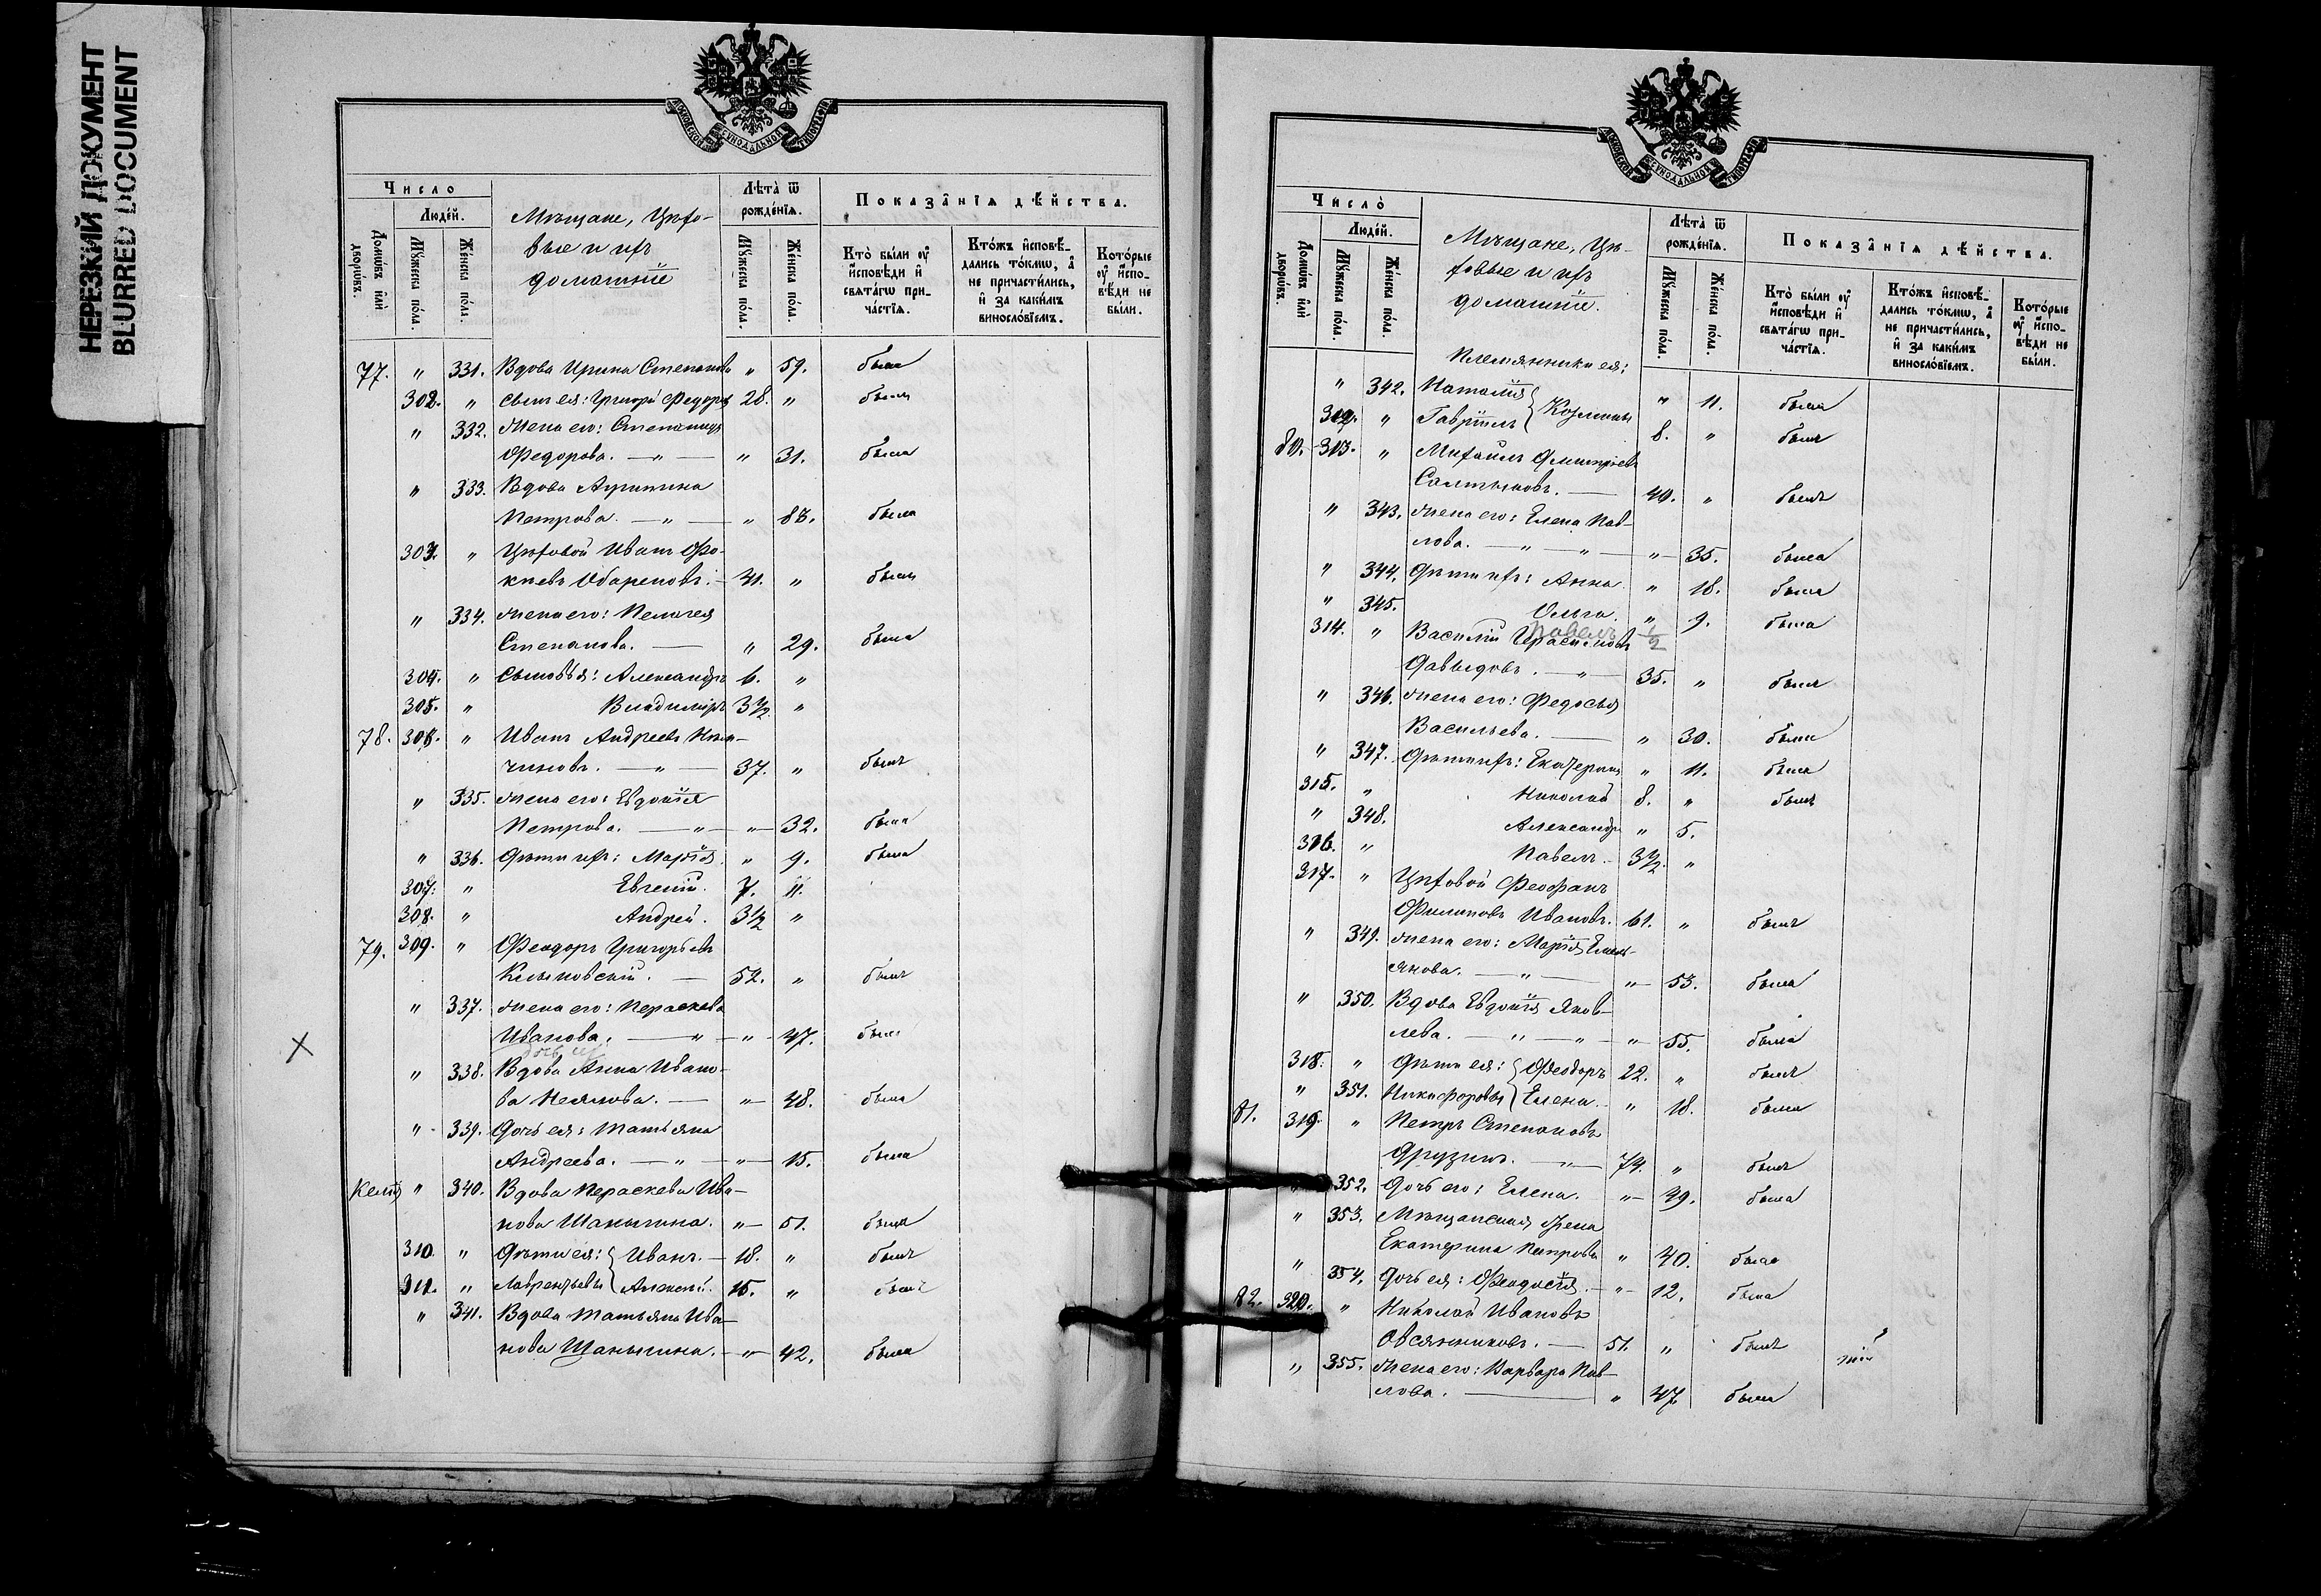 НЕРЕЗКИЙ ДОКУМЕНТ
BLURRED DOCUMENT
МОСКОВСКОЙ СУНОДАЛЬНОЙ ТИПОГРАФІИ
Число
Людей.
Домѡвъ или дворѡвъ.
Мꙋжеска пола.
Женска пола.
Мѣщане, Цехо-
вые и ихъ
домашніе
Лѣта ѿ рожденїѧ.
Мꙋжеска пола.
Женска пола.
Показанїѧ дѣйства.
Кто были ᲂу исповѣди и свѧтагѡ причастїѧ.
Ктожъ исповѣдались токмѡ, а не причастились, и за какимъ винословїемъ.
Которые ᲂу исповѣди не были.
77. " 331. Вдова Ирина Степанова " 59. была
302. " Сынъ ея: Григорій Федоръ 28. " былъ
" 332. Жена его: Степанида
Федорова. — " — " 31. была
" 333. Вдова Агрипина
Петрова. — " — " была
303. " Цеховой Иванъ Фо-
кіевъ — 41. " былъ
" 334. Жена его: Пелагея
Степанова. — " 29. была
304. " Сыновья: Александръ 6. "
305. " Владиміръ 3½ "
78. 306. " Иванъ Андреевъ
чиновъ. — " — 37. " былъ
" 335. Жена его: Евдокія
Петрова. — " — " — 32. была
" 336. Дѣти ихъ: Марія. " 9. была
307. " Евгеній. 7. "
308. " Андрей. 3½ "
79. 309. " Феодоръ Григорьевъ
— 52. " былъ
" 337. Жена его: Параскева
Иванова. — " — " — 47. была
" 338. Вдова Анна Ивано-
ва — " — 48. была
" 339. Дочь ея: Татьяна
Андреева. — " — " — 15. была
Келія " 340. Вдова Параскева Ива-
нова Шаныгина. " — 51. была
310. " Дѣти ея: { Иванъ. — 18. " былъ
311. " Лаврентьевы { Алексѣй. 15. " былъ
" 341. Вдова Татьяна Ива-
нова Шаныгина. — " — 42. была
МОСКОВСКОЙ СУНОДАЛЬНОЙ ТИПОГРАФІИ
Число
Людей.
Домѡвъ или дворѡвъ.
Мꙋжеска пола.
Женска пола.
Мѣщане, Це-
ховые и ихъ
домашніе.
Лѣта ѿ рожденїѧ.
Мꙋжеска пола.
Женска пола.
Показанїѧ дѣйства.
Кто были ᲂу исповѣди и свѧтагѡ причастїѧ.
Ктожъ исповѣдались токмѡ, а не причастились, и за какимъ винословїемъ.
Которые ᲂу исповѣди не были.
Племянники ея:
" 342. Наталія { Козмины " 11. была
312. " Гавріилъ { 8. " былъ
80. 313. " Михаилъ Дмитріевъ
Салтыковъ. — 40. " былъ
" 343. Жена его: Елена Пав-
лова. — " — " — " — 35. была
" 344. Дѣти ихъ: Анна. " 18. была
" 345. Ольга. " 9. была
Павелъ ½
314. " Василій Герасимовъ
Давыдовъ. — " — 35. " былъ
" 346. Жена его: Федосья
Васильева. — " 30. была
" 347. Дѣти ихъ: Екатерина " 11. была
315. " Николай 8. " былъ
" 348. Александра " 5.
316. " Павелъ. 3½. "
317. " Цеховой Феофанъ
Филиповъ Ивановъ. 61. " былъ
" 349. Жена его: Марія Емель-
янова. — " — " — 53. была
" 350. Вдова Евдокія Яков-
лева. — " — " — " — 55. была
318. " Дѣти ея: { Феодоръ 22. " былъ
" 351. Никифоровы { Елена. " 18. была
81. 319. " Петръ Степановъ
Друзинъ. — " — 74. " былъ
" 352. Дочь его: Елена. " — 49. была
" 353. Мѣщанская жена
Екатерина Петрова " 40. была
" 354. Дочь ея: Феодосія. — " — 12. была
82. 320. " Николай Ивановъ
Овсянниковъ. — 51. " былъ
" 355. Жена его: Варвара Пав-
лова. — " 47. была